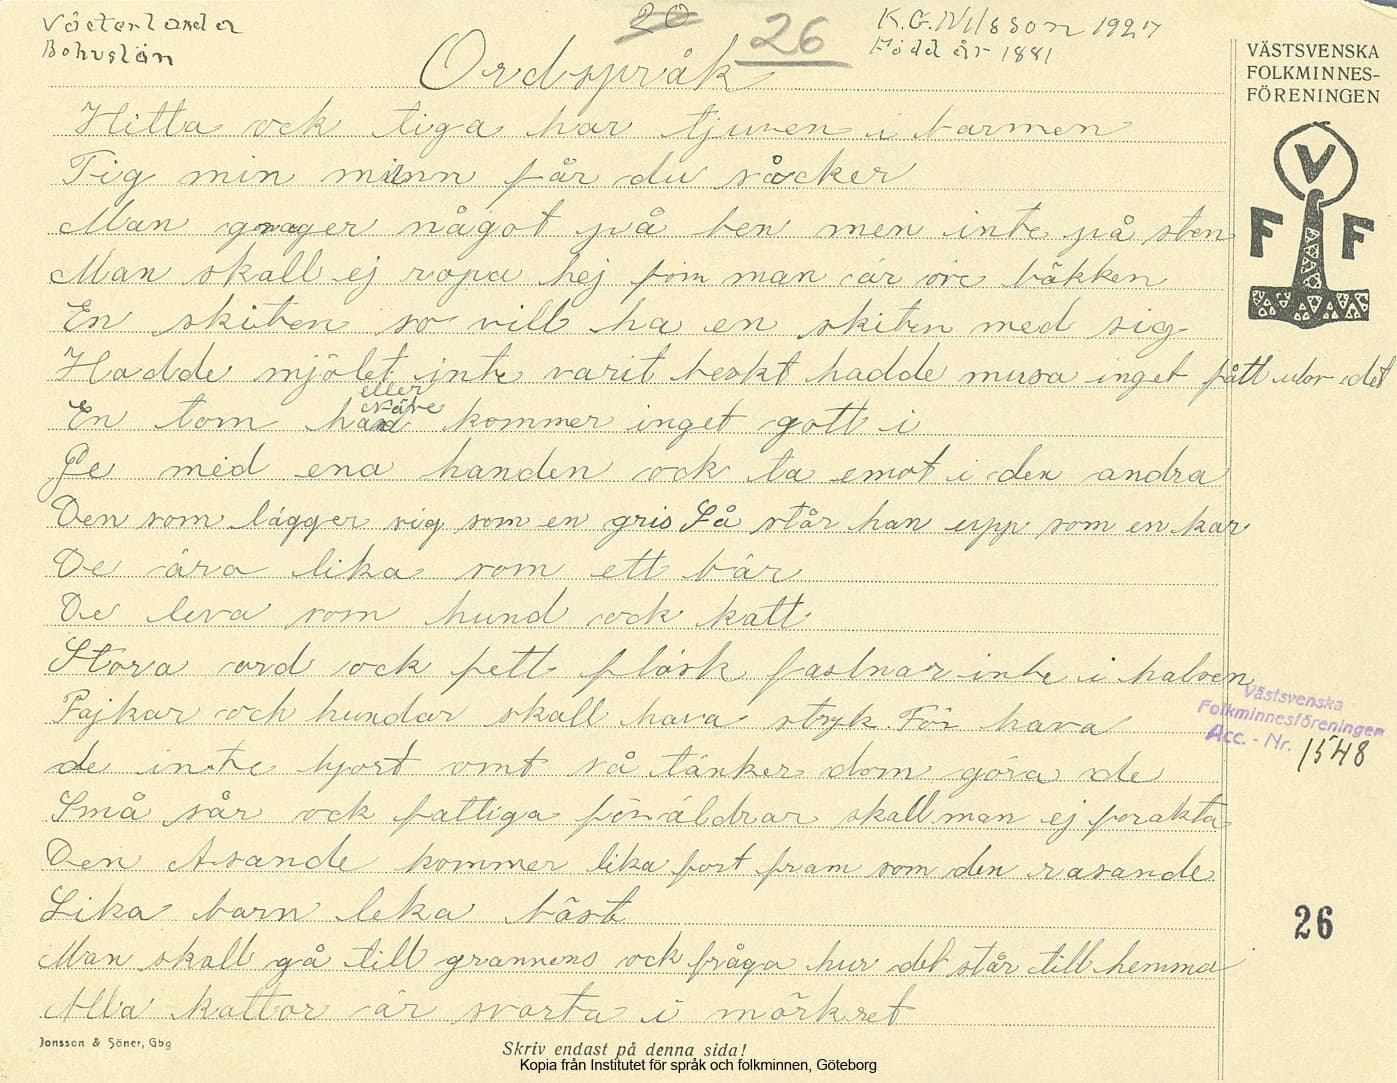 Västerlanda
Bohuslän
20
26
K.G. Nilsson 1927
Född år 1881
Ordspråk
VÄSTSVENSKA
FOLKMINNES-
FÖRENINGEN
V
F F
Hitta ock tiga har tjuven i barmen
Tig min munn får du såcker
Man gnager något på ben men inte på sten
Man skall ej ropa hej föin man är öve bäkken
En skiten so vill ha en skiten med sig
Hadde mjölet inte varit beskt hadde musa inget fått utov det
eller
näve
En tom hand kommer inget gott i
Ge med ena handen ock ta emot i den andra
Den som lägger sig som en gris Så står han upp som en kar
De ära lika som ett bär
De leva som hund ock katt
Stora ord ock fett fläsk fastnar inte i halsen
Pajkar och hundar skall hava stryk För hava
de inte hjort omt så tänker dom göra de
Små sår ock fattiga föräldrar skall man ej forakta
Den Asande kommer lika fort fram som den rasande
Lika barn leka bäst
Man skall gå till grannens ock fråga hur det står till hemma
Alla kattor är svarta i mörkret
Västsvenska
Folkminnesföreningen
Acc. - Nr. 1548
26
Jonsson & Söner, Gbg
Skriv endast på denna sida!
Kopia från Institutet för språk och folkminnen, Göteborg